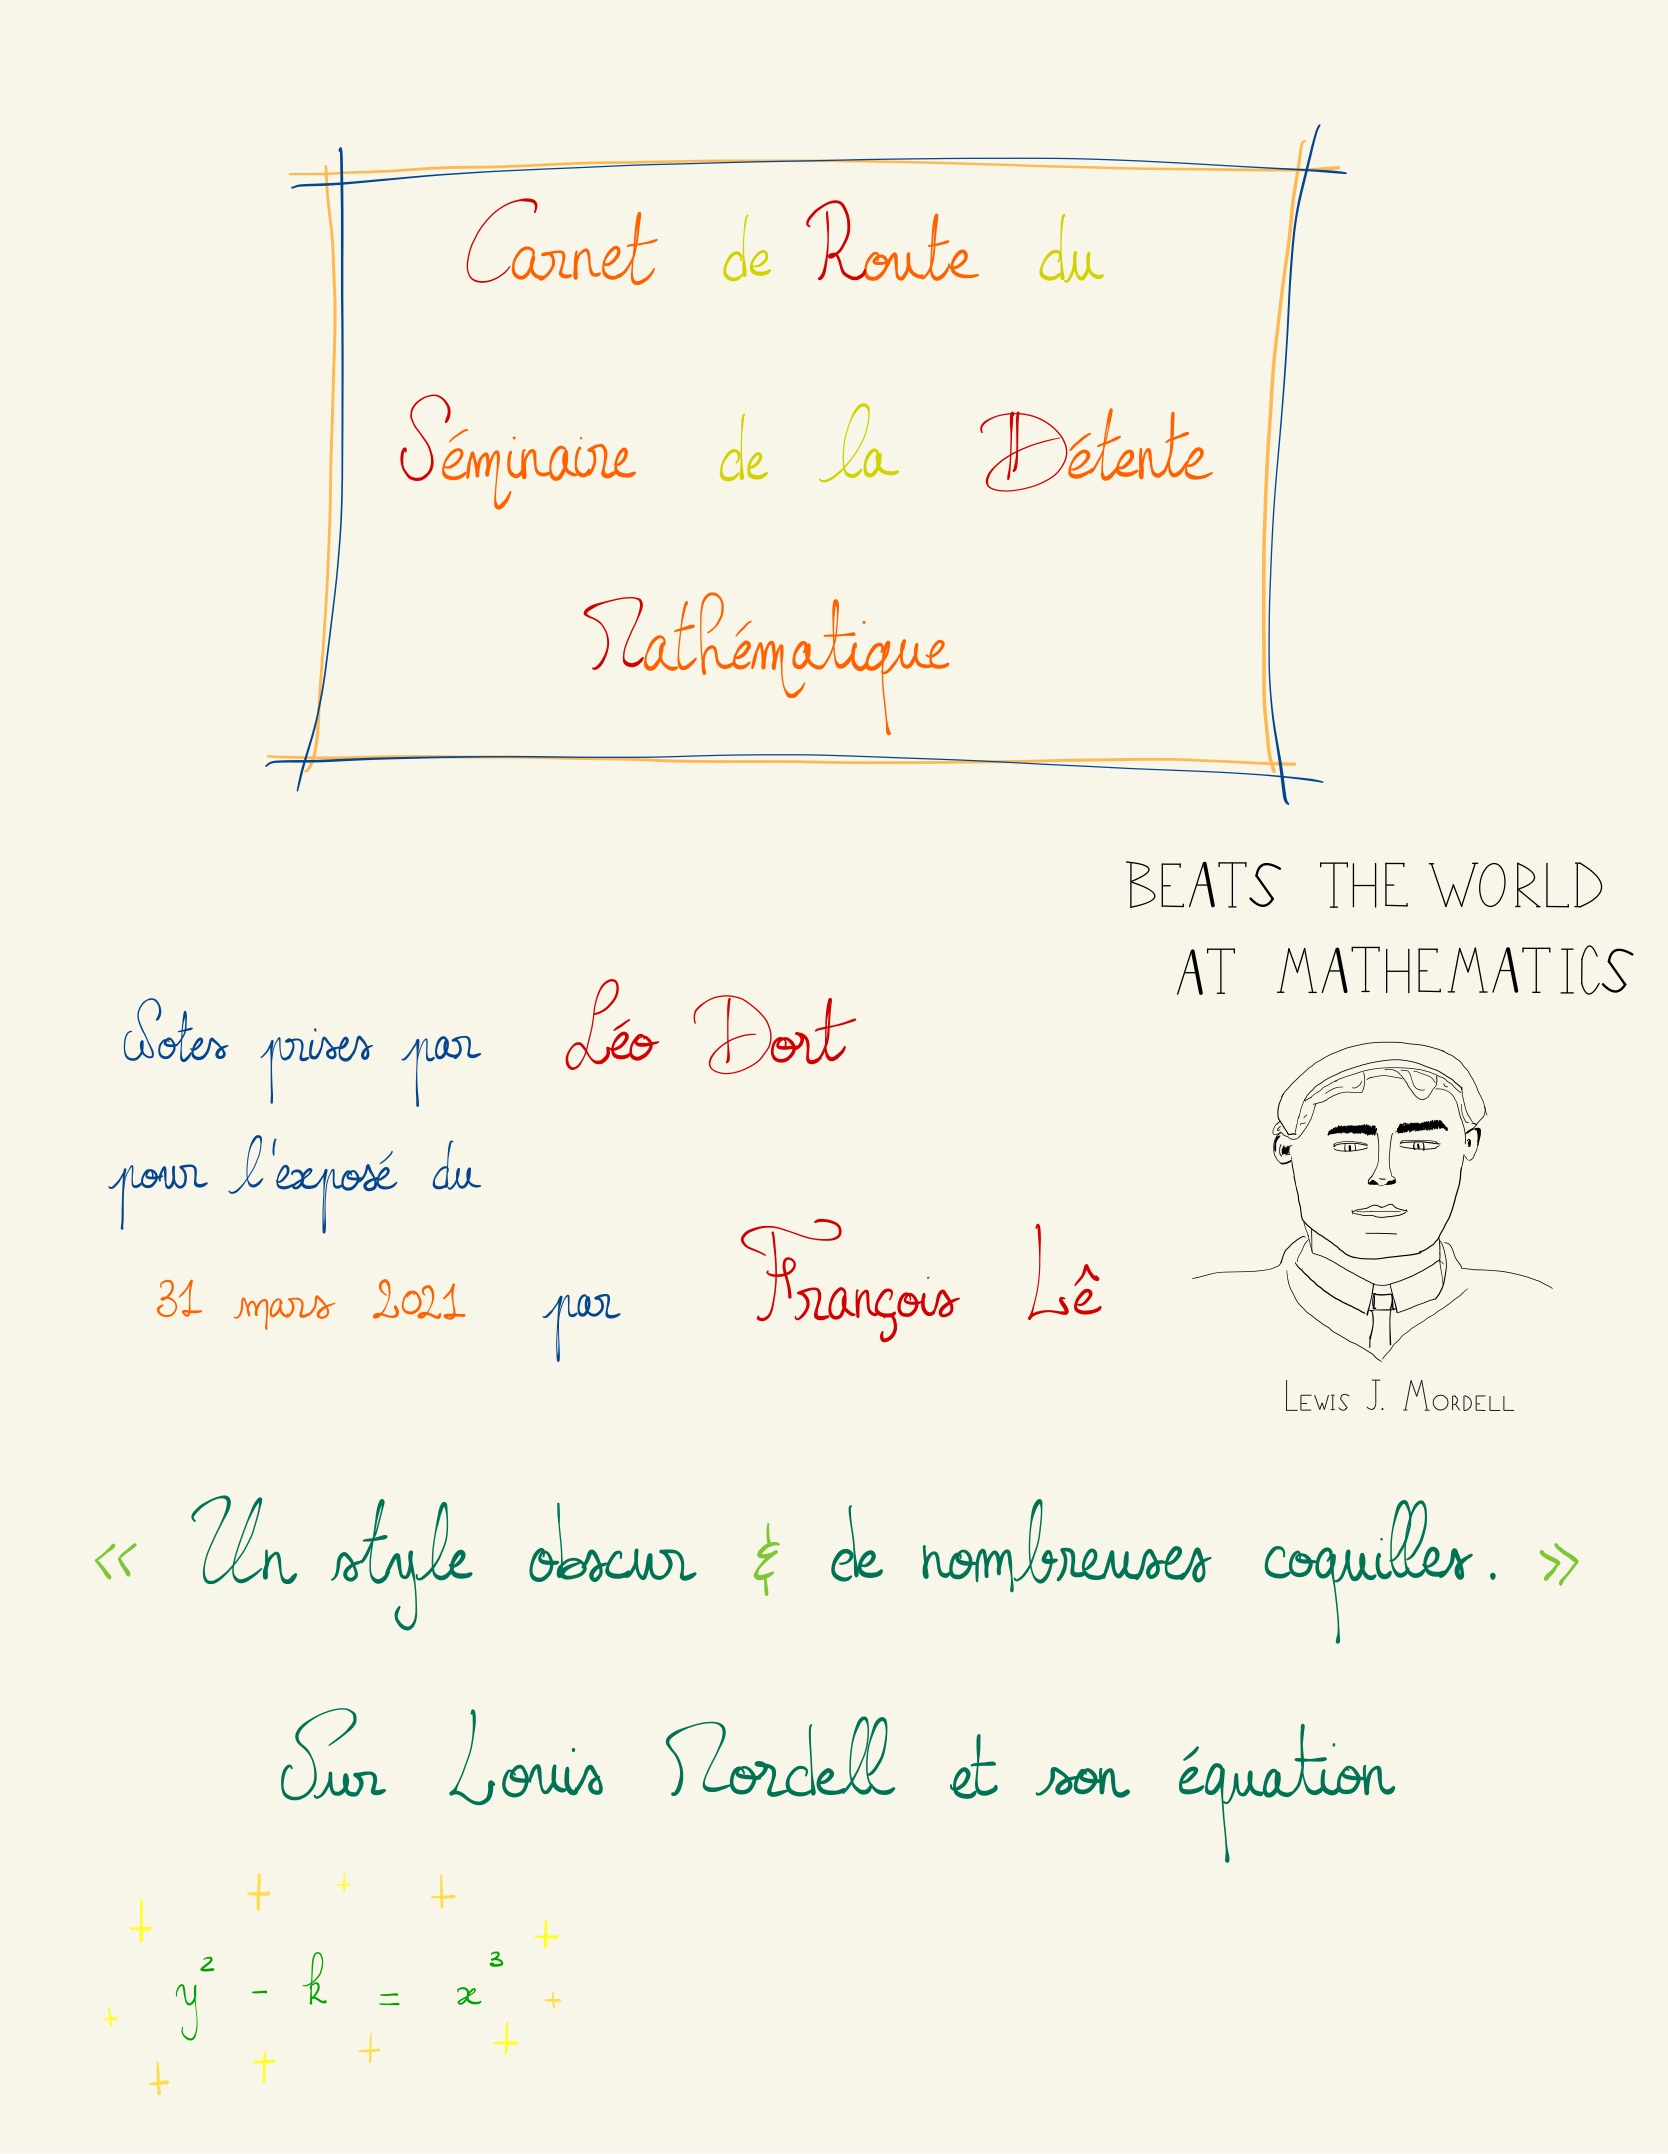 Carnet de Route du
Séminaire de la Détente
Mathématique
BEATS THE WORLD
AT MATHEMATICS
Notes prises par Léo Dort
pour l'exposé du
31 mars 2021 par François Lê
LEWIS J. MORDELL
« Un style obscur & de nombreuses coquilles. »
Sur Louis Mordell et son équation
y² - k = x³